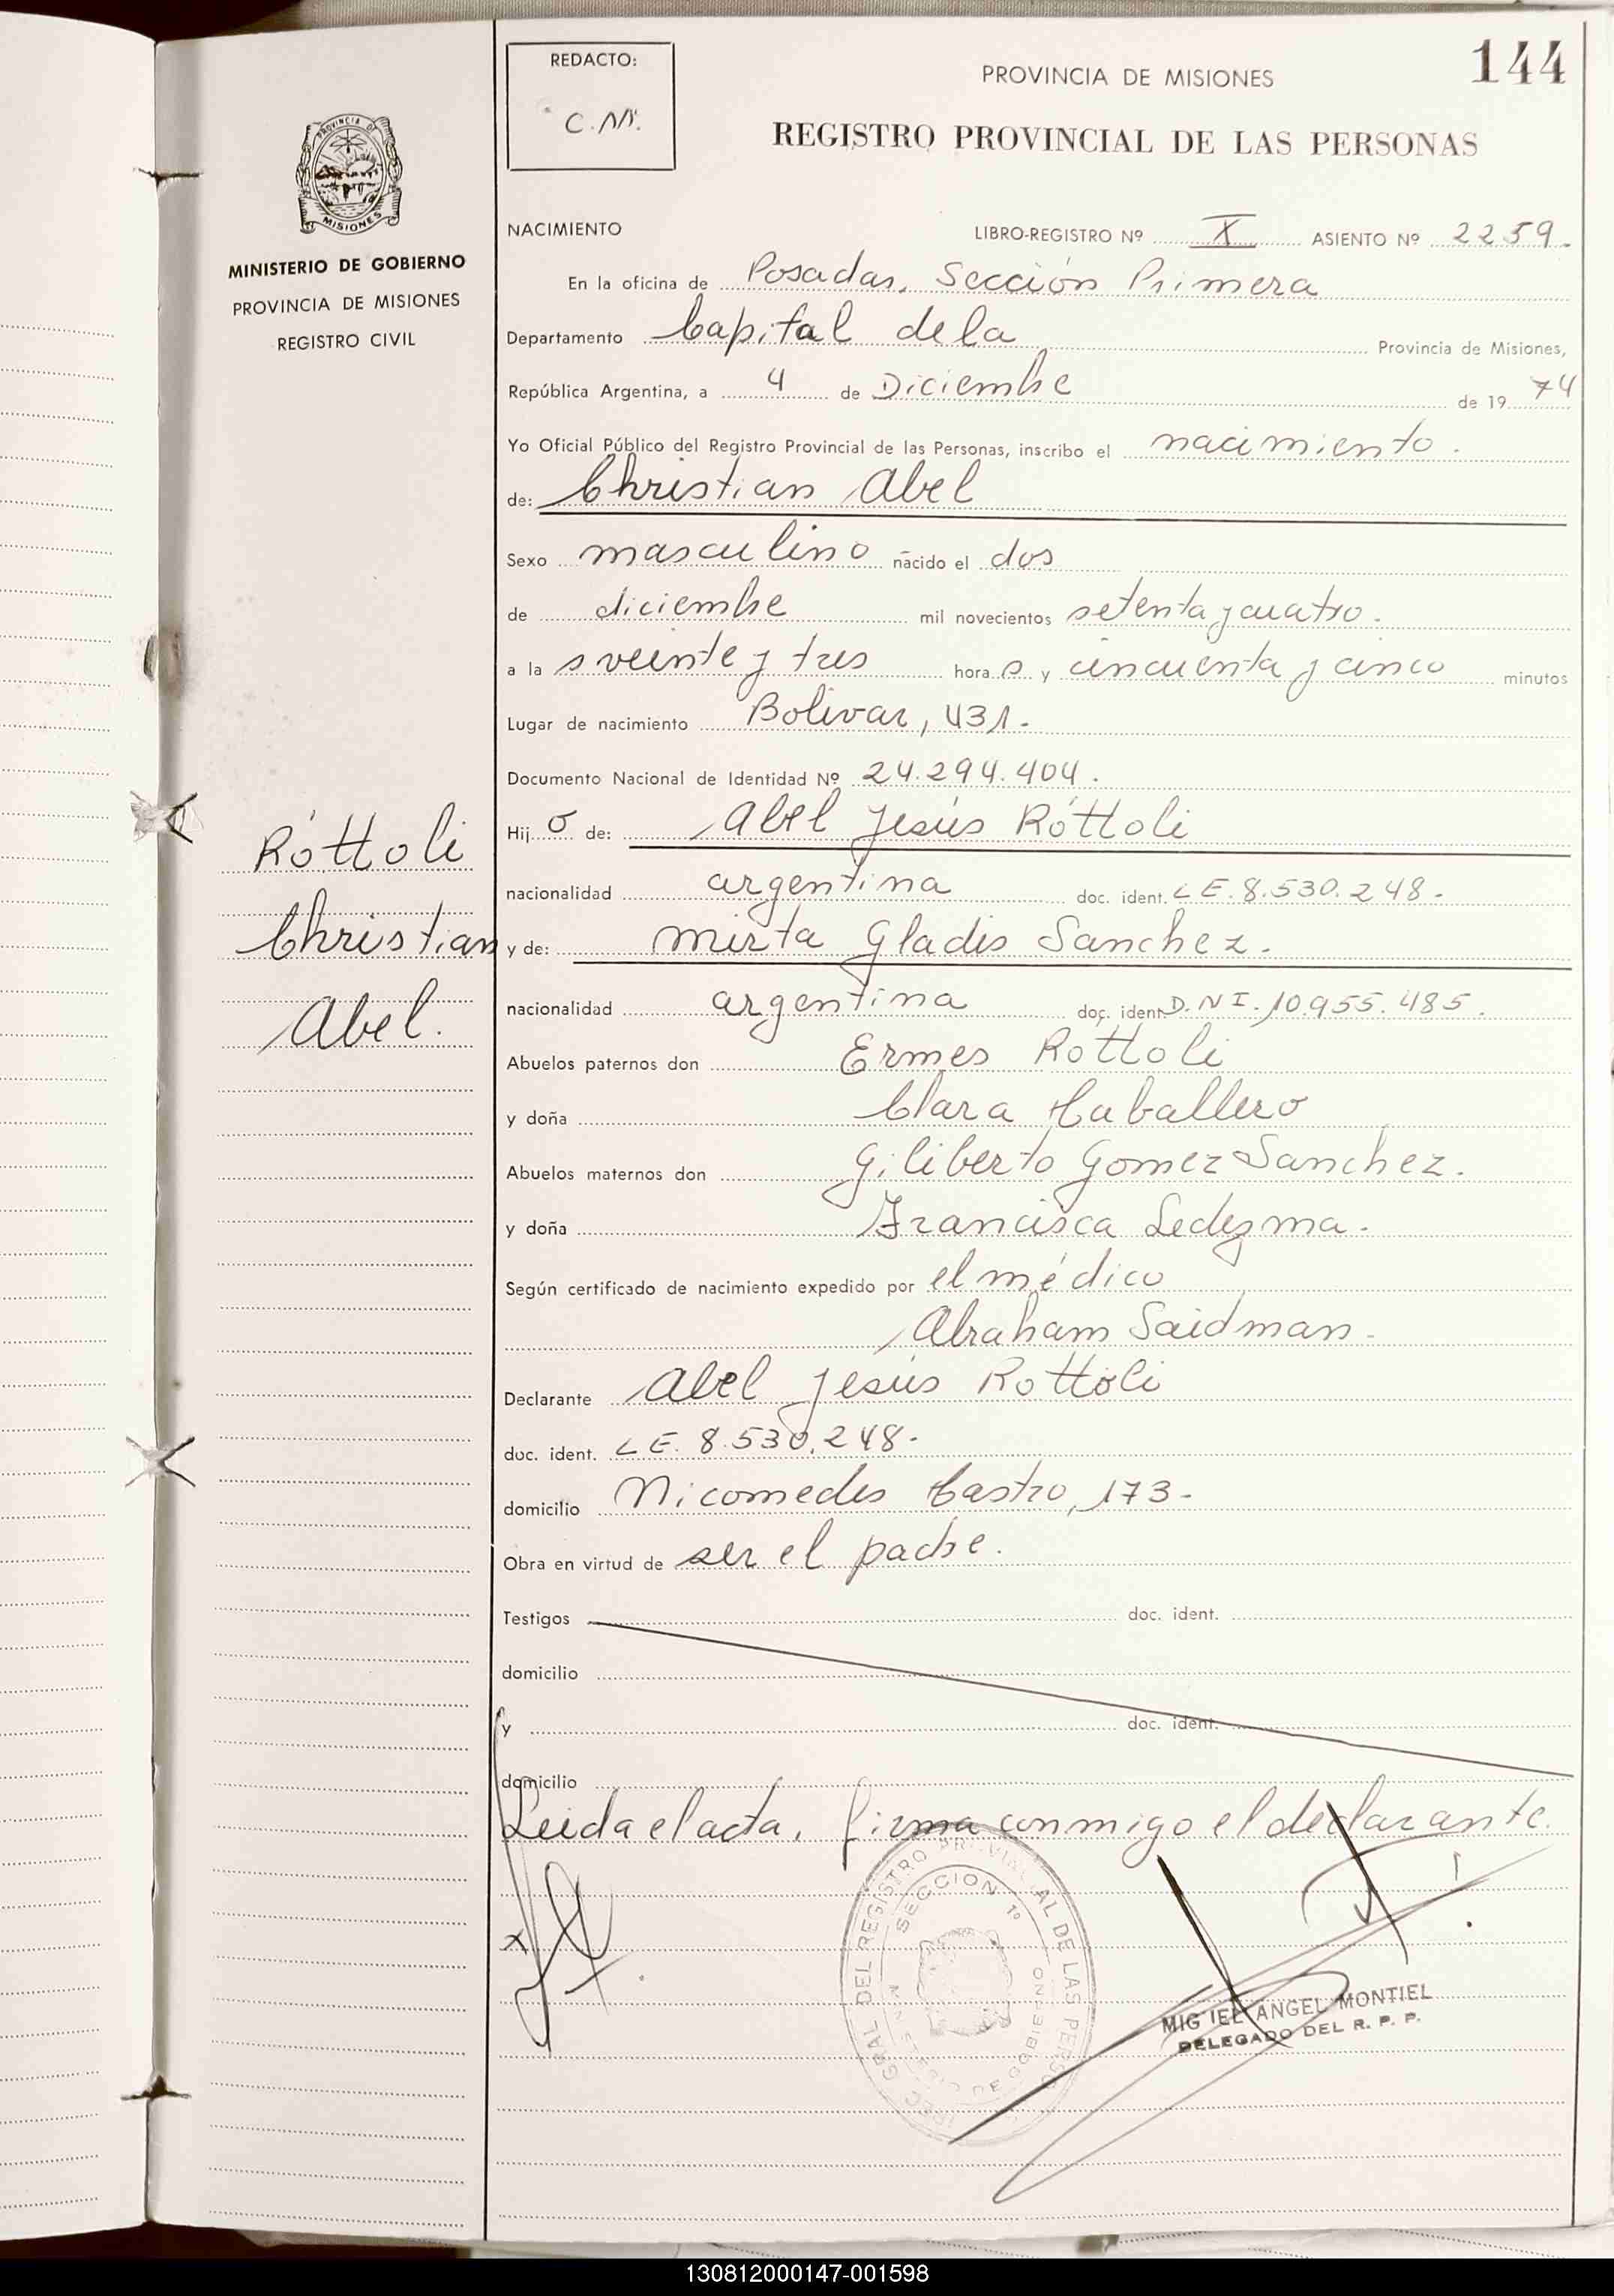 144
REDACTO:
C.M.
PROVINCIA DE MISIONES
REGISTRO PROVINCIAL DE LAS PERSONAS
PROVINCIA DE
MISIONES
MINISTERIO DE GOBIERNO
PROVINCIA DE MISIONES
REGISTRO CIVIL
Róttoli
Christian
Abel.
NACIMIENTO LIBRO-REGISTRO Nº X ASIENTO Nº 2259.
En la oficina de Posadas, Sección Primera
Departamento Capital de la Provincia de Misiones,
República Argentina, a 4 de Diciembre de 19 74
Yo Oficial Público del Registro Provincial de las Personas, inscribo el nacimiento.
de: Christian Abel
Sexo masculino nacido el dos
de diciembre mil novecientos setenta y cuatro.
a la s veinte y tres hora s y cincuenta y cinco minutos
Lugar de nacimiento Bolivar, 431.
Documento Nacional de Identidad Nº 24.294.404.
Hij o de: Abel Jesús Róttoli
nacionalidad argentina doc. ident. L E. 8.530.248.
y de: Mirta Gladis Sanchez.
nacionalidad argentina doc. ident D.N I. 10.955.485.
Abuelos paternos don Ermes Rottoli
y doña Clara Caballero
Abuelos maternos don Giliberto Gomez Sanchez.
y doña Francisca Ledezma.
Según certificado de nacimiento expedido por el médico
Abraham Saidman.
Declarante Abel Jesús Rottoli
doc. ident. L E. 8.530.248.
domicilio Nicomedes Castro, 173.
Obra en virtud de ser el padre.
Testigos doc. ident.
domicilio
y doc. ident.
domicilio
Leida el acta, firma conmigo el declarante.
GRAL DEL REGISTRO PROVINCIAL DE LAS
SECCION 1º
MIG IEL ANGEL MONTIEL
DELEGADO DEL R. P. P.
130812000147-001598